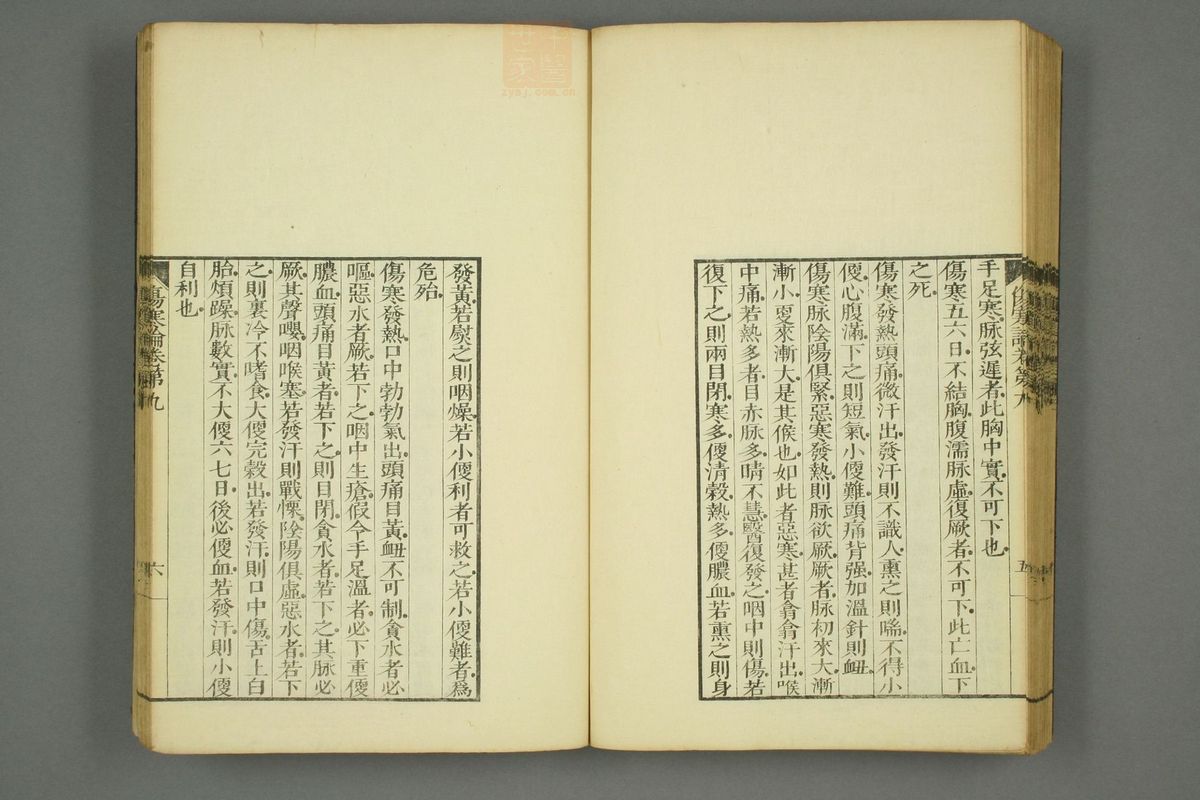 手足寒脉弦遲者此胸中實不可下也
傷寒五六日不結胸腹濡脉虛復厥者不可下此亡血下
之死
傷寒發熱頭痛微汗出發汗則不識人熏之則喘不得小
便心腹滿下之則短氣小便難頭痛背强加溫針則衄
傷寒脉陰陽俱緊惡寒發熱則脉欲厥厥者脉初來大漸
漸小更來漸大是其候也如此者惡寒甚者翕翕汗出喉
中痛若熱多者目赤脉多睛不慧醫復發之咽中則傷若
復下之則兩目閉寒多便清穀熱多便膿血若熏之則身
傷寒論卷第九
五
發黃若熨之則咽燥若小便利者可救之若小便難者爲
危殆
傷寒發熱口中勃勃氣出頭痛目黃衄不可制貪水者必
嘔惡水者厥若下之咽中生瘡假令手足溫者必下重便
膿血頭痛目黃者若下之則目閉貪水者若下之其脉必
厥其聲嚶咽喉塞若發汗則戰慄陰陽俱虛惡水者若下
之則裏冷不嗜食大便完穀出若發汗則口中傷舌上白
胎煩躁脉數實不大便六七日後必便血若發汗則小便
自利也
傷寒論卷第九
六
中醫世家
zysj.com.cn